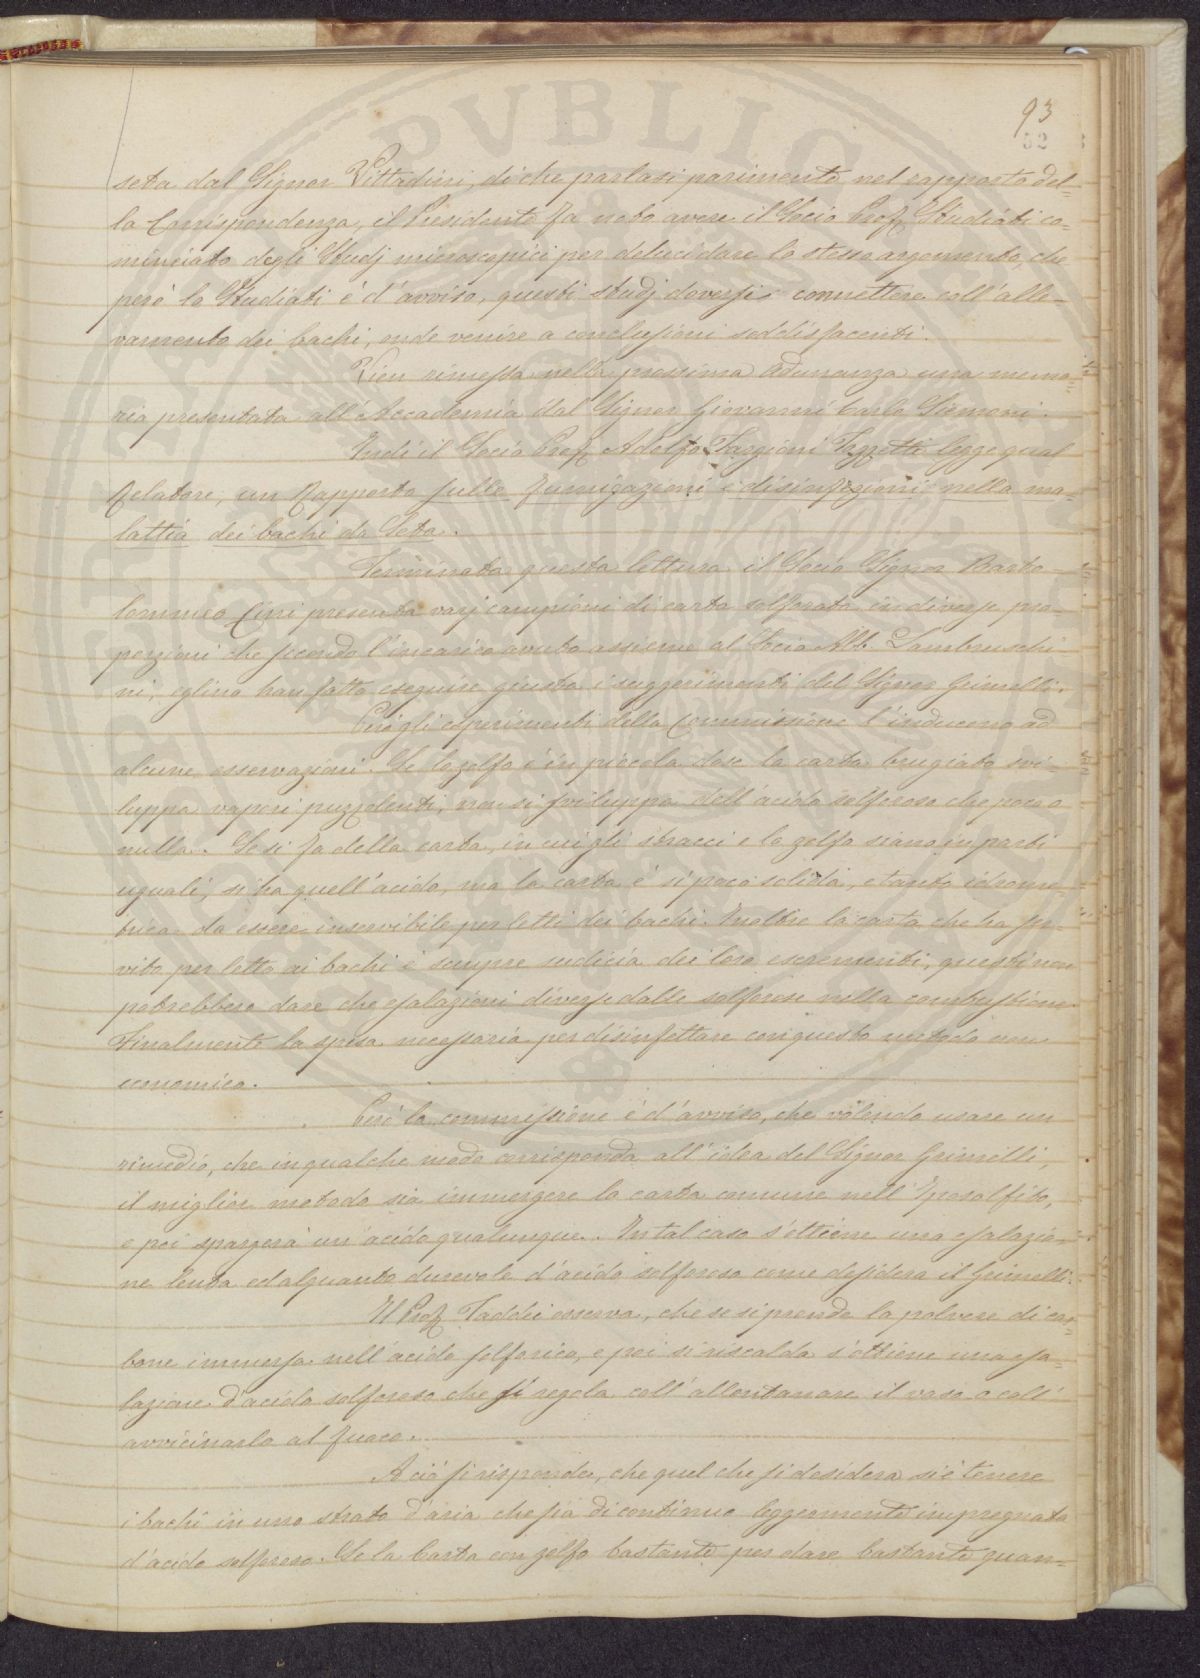 93
52
seta dal Signor Vittadini, di che parlasi parimente nel rapporto del=
la Corrispondenza, il Presidente fa noto avere il Socio Prof. Studiati co=
minciato degli Studj microscopici per delucidare lo stesso argomento, che
però lo Studiati è d'avviso, questi studj doversi connettere coll'alle=
vamento dei bachi, onde venire a conclusioni soddisfacenti.
Vien rimessa nella prossima adunanza una memo=
ria presentata all'Accademia dal Signor Giovanni Carlo Siemoni.
Indi il Socio Prof. Adolfo Targioni Tozzetti legge qual
Relatore, un Rapporto sulle fumigazioni e disinfezioni nella ma=
lattia dei bachi da Seta.
Terminata questa lettura il Socio Signor Barto=
lommeo Cini presenta varj campioni di carta solforata in diverse pro=
porzioni che secondo l'incarico avuto assieme al Socio Ab. Lambruschi=
ni, eglino han fatto eseguire giusta i suggerimenti del Signor Grimelli.
Però gli esperimenti della Commissione l'inducono ad
alcune osservazioni. Se lo zolfo è in piccola dose la carta brugiata svi=
luppa vapori puzzolenti, non si sviluppa dell'acido solforoso che poco o
nulla. Se si fa della carta, in cui gli stracci e lo zolfo siano in parti
uguali, si ha quell'acido, ma la carta è sì poco solida, e tanto idrome=
trica da essere inservibile per letti dei bachi. Inoltre la carta che ha ser=
vito per letto ai bachi è sempre sudicia dei loro escrementi, questi non
potrebbero dare che esalazioni diverse dalle solforose nella combustione.
Finalmente la spesa necessaria per disinfettare con questo metodo non
economica.
Però la commissione è d'avviso, che volendo usare un
rimedio, che in qualche modo corrisponda all'idea del Signor Grimelli,
il miglior metodo sia immergere la carta comune nell'Iposolfito,
e poi spargerci un acido qualunque. In tal caso s'ottiene una esalazio=
ne lenta ed alquanto durevole d'acido solforoso come desidera il Grimelli.
Il Prof. Taddei osserva, che se si prende la polvere di car=
bone immersa nell'acido solforico, e poi si riscalda s'ottiene una esa=
lazione d'acido solforoso che si regola coll'allontanare il vaso o coll'
avvicinarlo al fuoco.
A ciò si risponde, che quel che si desidera si è tenere
i bachi in uno strato d'aria che sia di continuo leggermente impregnata
d'acido solforoso. Se la Carta con zolfo bastante per dare bastante quan=